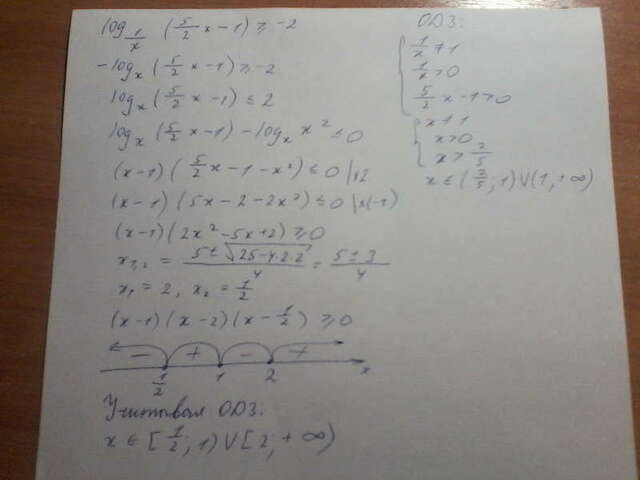 log_{1/x} (5/2 x - 1) ≥ -2
-log_x (5/2 x - 1) ≥ -2
log_x (5/2 x - 1) ≤ 2
log_x (5/2 x - 1) - log_x x² ≤ 0
(x-1)(5/2 x - 1 - x²) ≤ 0 |×2
(x-1)(5x - 2 - 2x²) ≤ 0 |×(-1)
(x-1)(2x² - 5x + 2) ≥ 0
x_{1,2} = (5 ± √(25 - 4·2·2))/4 = (5 ± 3)/4
x₁ = 2, x₂ = 1/2
(x-1)(x-2)(x - 1/2) ≥ 0
- + - +
1/2 1 2 x
Учитывая ОДЗ:
x ∈ [1/2; 1) ∪ [2; +∞)
ОДЗ:
1/x ≠ 1
1/x > 0
5/2 x - 1 > 0
x ≠ 1
x > 0
x > 2/5
x ∈ (2/5; 1) ∪ (1; +∞)